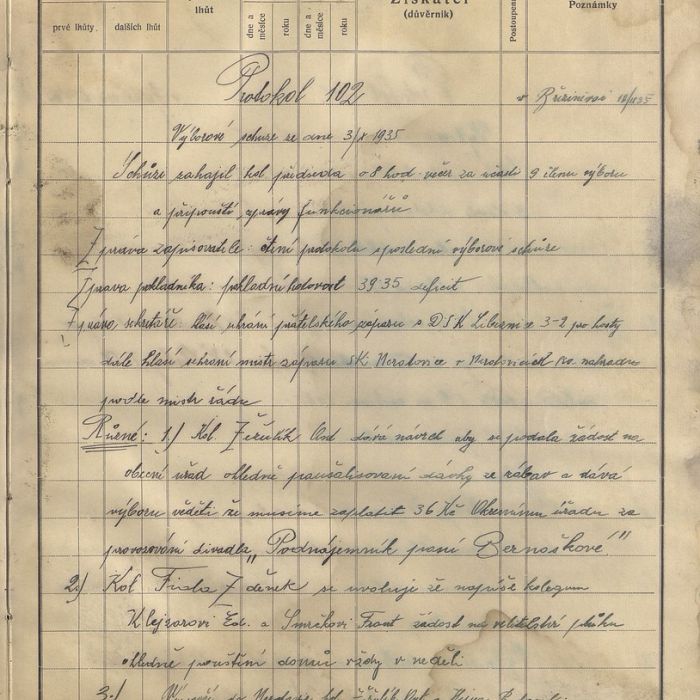 prvé lhůty. dalších lhůt lhůt dne a měsíce roku dne a měsíce roku (důvěrník) Poznámky
Protokol 102
v Březiněvsi
Výborové schůze ze dne 3/X 1935
Schůze zahajil kol předseda o 8 hod večer za účasti 9 členu výboru
a připouští zprávy funkcionářů
Zpráva zapisovatele: čtení protokolu s poslední výborové schůze
Zprava pokladníka: pokladní hotovost 39·35 deficit
Zpráva sekretáře: hlásí uhrání přatelského zápasu s DSK Libeznice 3-2 pro hosty
dále hlásí sehraní mistr zápasu SK Neratovice v Neratovicích
podle mistr řádu
Různé: 1.) Kol. dává návrch aby se podala žádost na
obecní úřad ohledně paušalisovaní dávky ze zábav a dává
výboru věděti že musíme zaplatit 36 Kč Okresnímu úřadu za
provozování divadla „Podnájemník paní Bernoškové."
2.) Kol Frida Zděnek se uvoluje že napíše kolegum
Klejzarovi Ed. a Smrčkovi Frant žádost na velitelství pluku
ohledně pouštění domů vždy v neděli
3.)